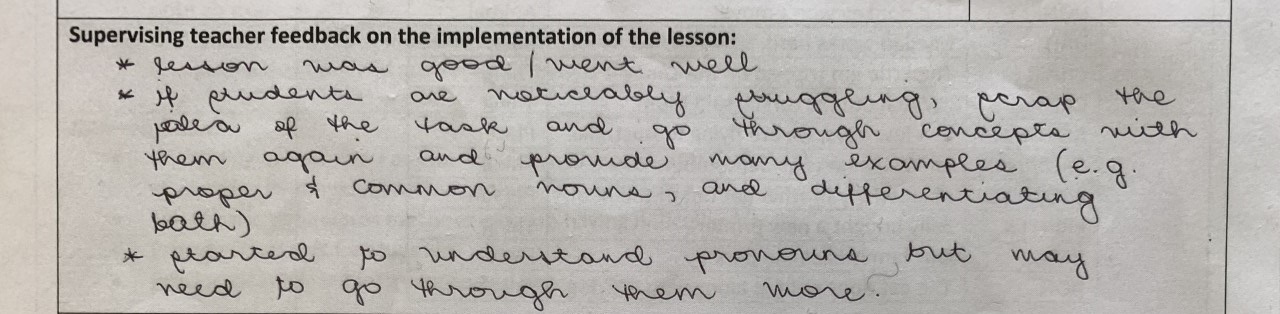 Supervising teacher feedback on the implementation of the lesson:
* lesson was good / went well
* if students are noticeably struggling, scrap the
idea of the task and go through concepts with
them again and provide many examples (e.g.
proper & common nouns, and differentiating
both)
* started to understand pronouns but may
need to go through them more.